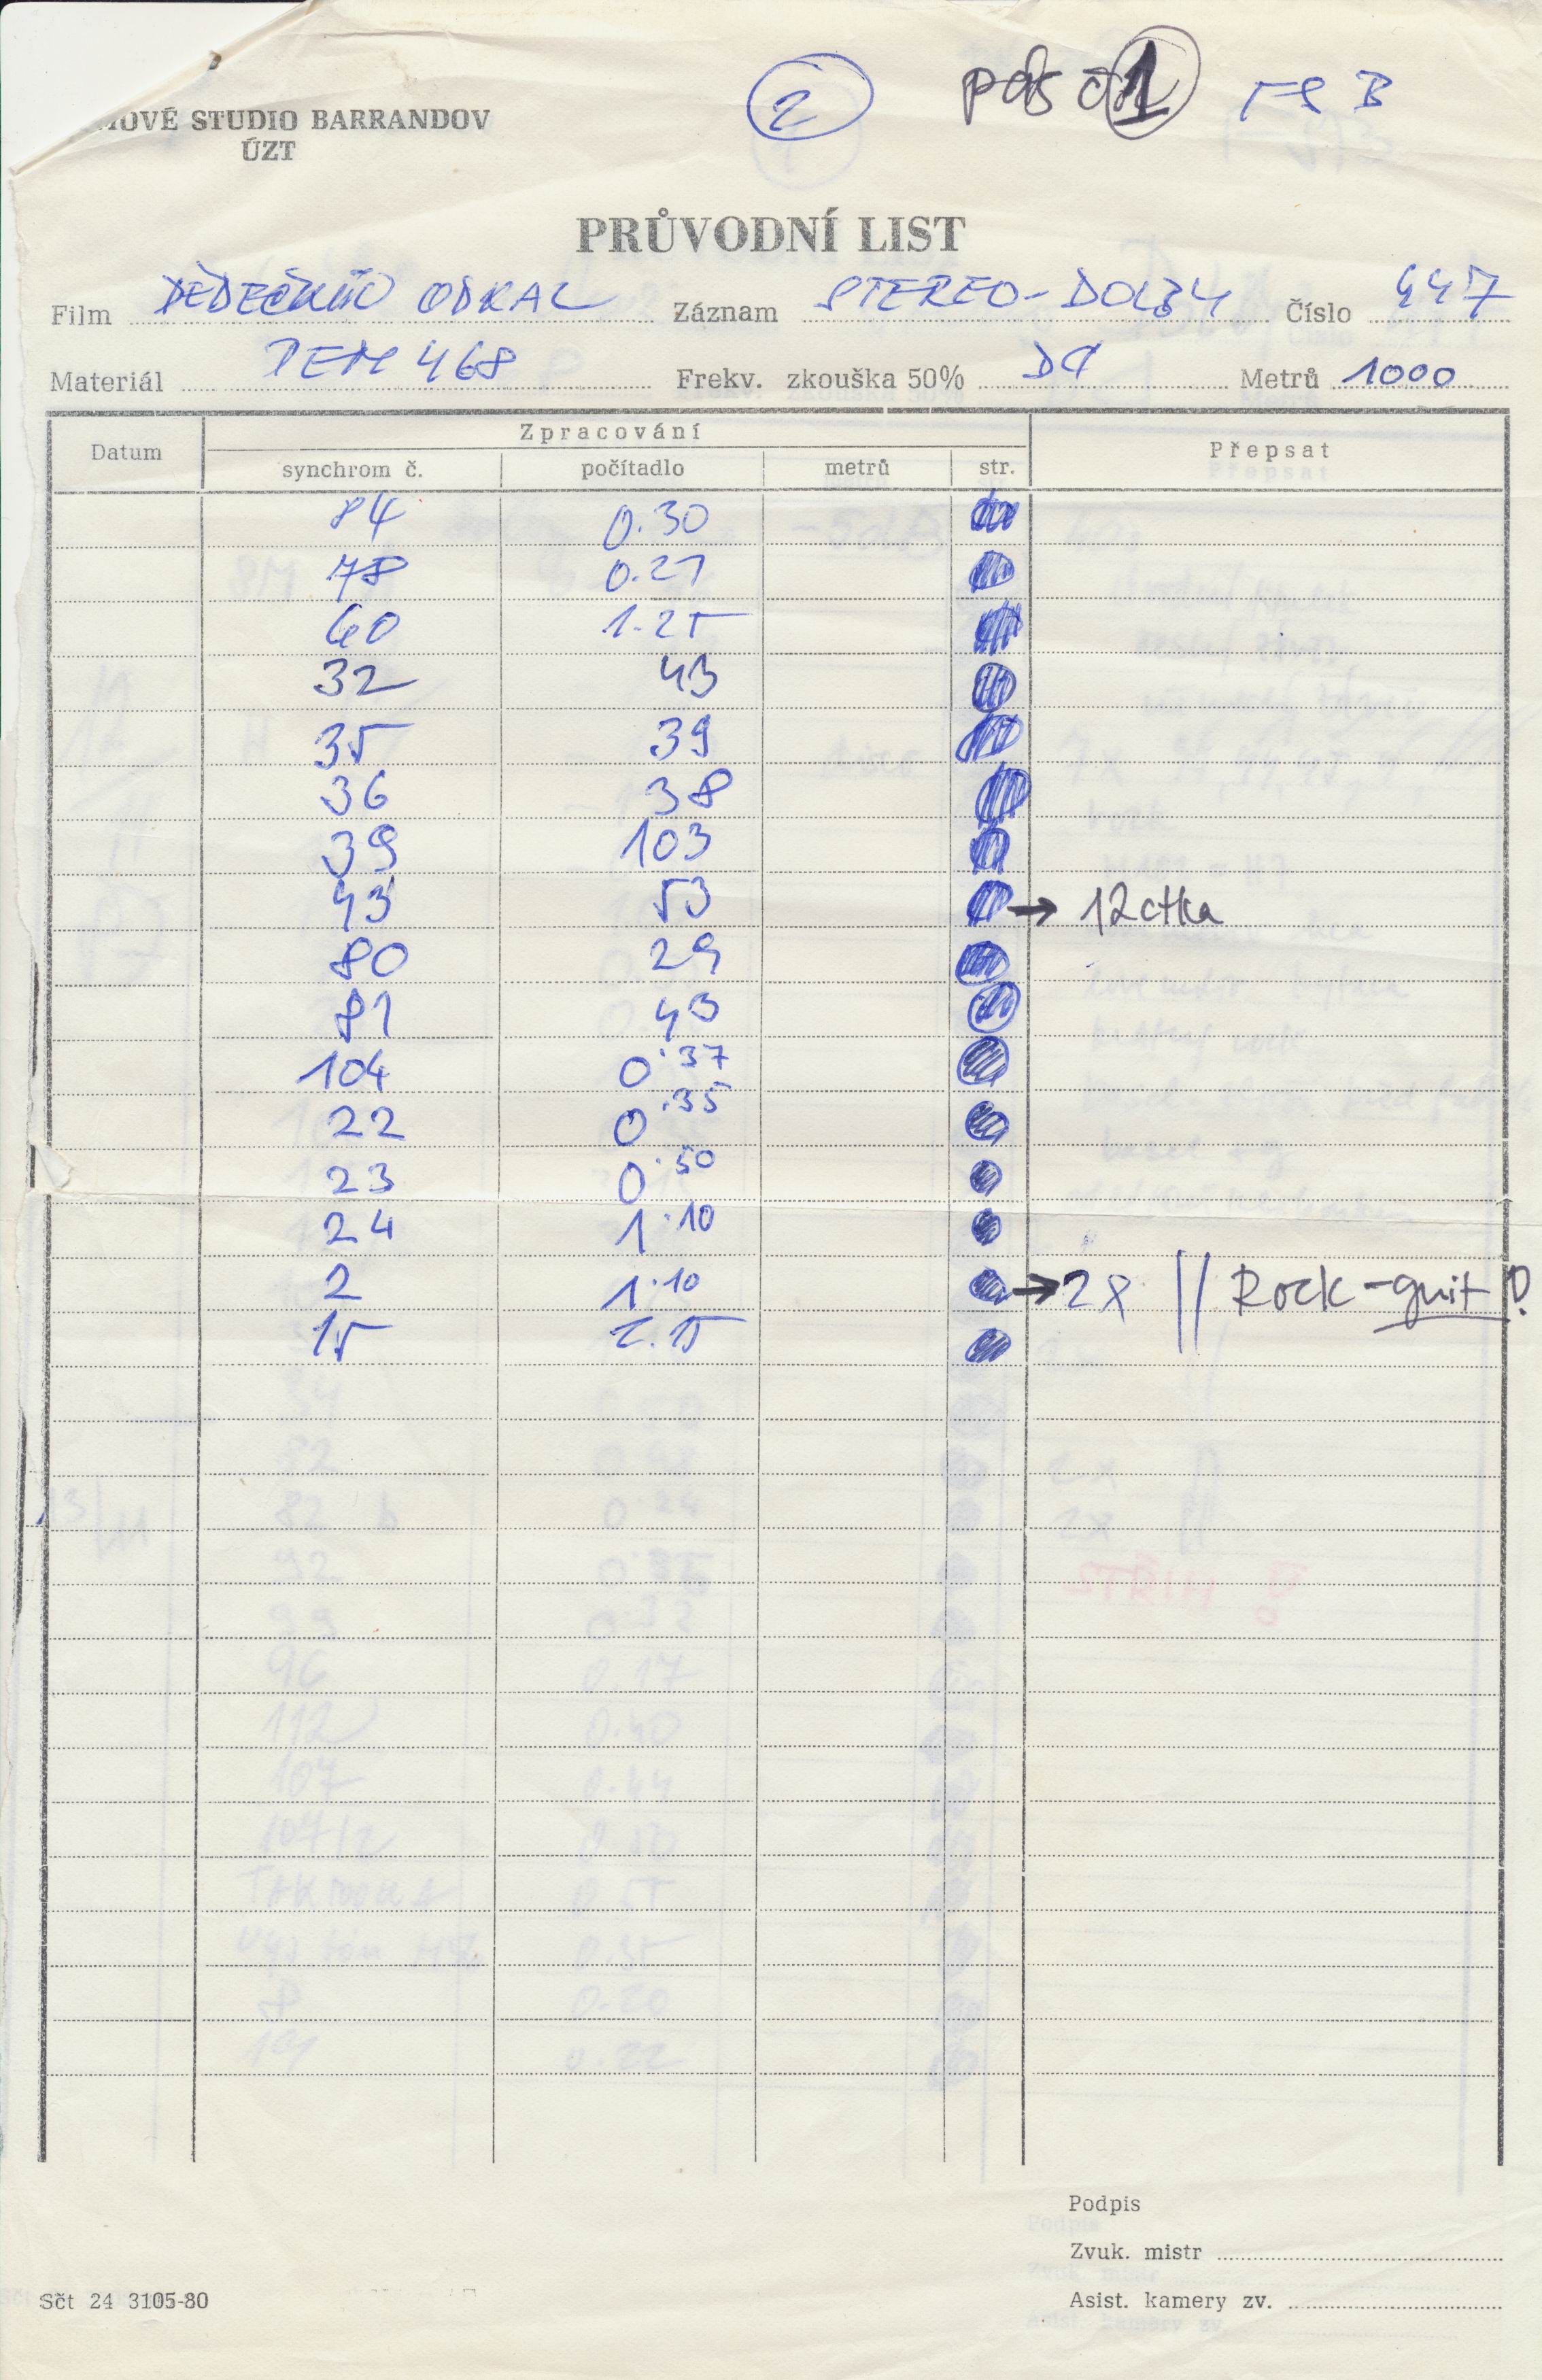 2 pás č. 1
MOVÉ STUDIO BARRANDOV
ÚZT
PRŮVODNÍ LIST
Film DĚDEČKŮV ODKAZ Záznam STEREO-DOLBY Číslo 447
Materiál PEM 468 Frekv. zkouška 50% Metrů 1000
Datum Zpracování Přepsat
synchrom č. počítadlo metrů str.
84 0.30
78 0.21
60 1.25
32 43
35 39
36 38
39 103
43 53 → 12ctka
80 29
81 43
104 0.37
22 0.35
23 0.50
24 1.10
2 1.10 → 2x || Rock-guit!
15 2.15
Podpis
Zvuk. mistr
Sčt 24 3105-80 Asist. kamery zv.